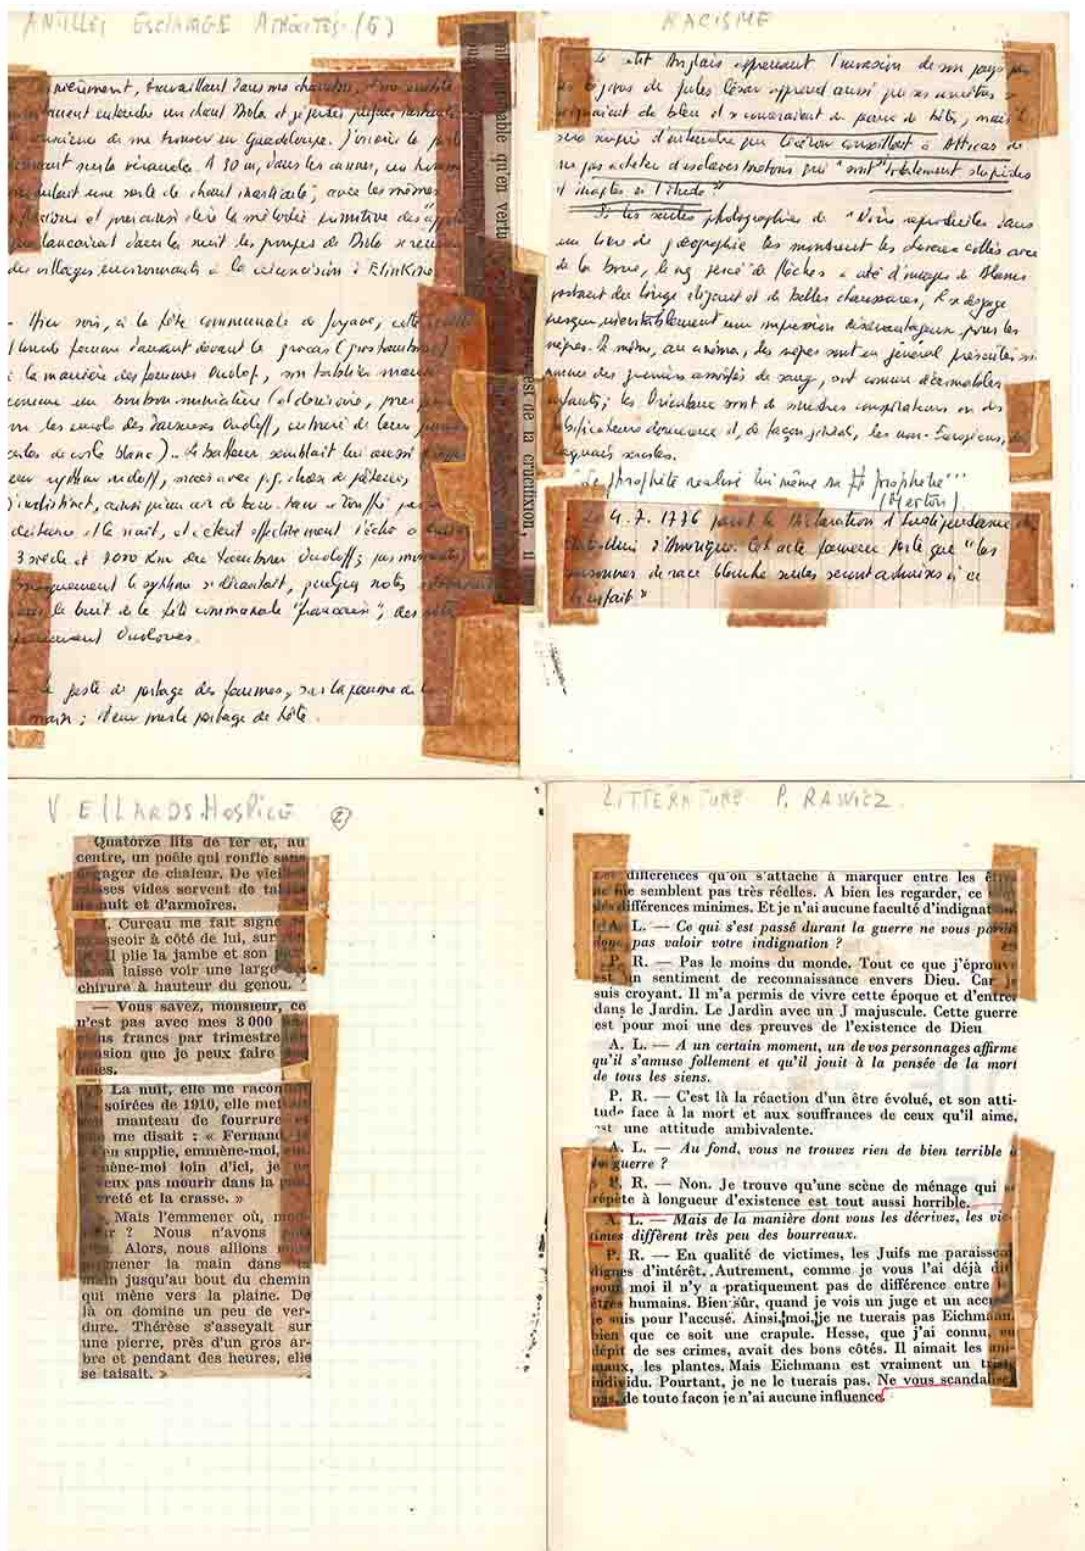 ANTILLES ESCLAVAGE ATROCITÉS (6)
travaillant dans ma chambre,
entendre un chant Diola et
de me trouver en Guadeloupe. J'ouvris la porte
sur la véranda. A 30 m, dans les cannes, un homme
une sorte de chant inarticulé, avec les mêmes
et presque la mélodie primitive des
lançaient dans la nuit les groupes de Diola
des villages environnants à la circoncision à Elinkine
- Hier soir, à la fête communale de Goyave, cette
femme dansant devant le
à la manière des femmes Ouolof, son tablier
comme un boubou miniature
des danseuses Ouoloff, entouré de leur
de toile blanc) .. Le batteur semblait lui aussi
un rythme ouoloff,
d'indistinct, ainsi qu'un air de tam-tam étouffé par
distance et la nuit, et c'était effectivement l'écho
3 siècle et 7000 Km des tambours Ouoloff; par moments
le rythme se décantait, quelques notes
le bruit de la fête communale "française", des notes
Ouoloves.
geste de portage des femmes, sur la paume de la
main; et leur port de tête.
est de la crucifixion, il
RACISME
petit Anglais apprenant l'invasion de son pays par
les légions de Jules César apprend aussi que ses ancêtres se
peignaient de bleu et se couvraient de peaux de bêtes, mais il
sera surpris d'entendre que Cicéron conseillait à Atticus de
ne pas acheter d'esclaves bretons qui "sont totalement stupides
et inaptes à l'étude"
Si les seules photographies de "Noirs reproduites dans
un livre de géographie les montrent les cheveux collés avec
de la boue, le nez percé de flèches à côté d'images de Blancs
portant du linge élégant et de belles chaussures, il se dégage
presque inévitablement une impression désavantageuse pour les
nègres. De même, au cinéma, des nègres sont en général présentés
comme des guerriers assoiffés de sang, ou comme d'aimables
enfants; les Orientaux sont de sinistres conspirateurs ou des
et, de façon générale, les non-Européens, des
laquais serviles.
Le prophète réalise lui même sa prophétie"
(Merton)
Le 4.7.1776 parut la Déclaration d'Indépendance
d'Amérique. Cet acte fameux porte que "les
personnes de race blanche seules seront admises à ce
bienfait"
VEILLARDS. HOSPICE (2)
Quatorze lits de fer et, au
centre, un poêle qui ronfle sans
dégager de chaleur. De vieilles
caisses vides servent de tables
de nuit et d'armoires.
M. Cureau me fait signe de
m'asseoir à côté de lui, sur son
Il plie la jambe et son
laisse voir une large
chirure à hauteur du genou.
— Vous savez, monsieur, ce
n'est pas avec mes 3 000
francs par trimestre de
pension que je peux faire des
La nuit, elle me racontait
soirées de 1910, elle mettait
manteau de fourrure et
me disait : « Fernand, je
t'en supplie, emmène-moi, em-
mène-moi loin d'ici, je ne
veux pas mourir dans la pau-
vreté et la crasse. »
Mais l'emmener où, mon-
sieur ? Nous n'avons
Alors, nous allions nous
promener la main dans la
main jusqu'au bout du chemin
qui mène vers la plaine. De
là on domine un peu de ver-
dure. Thérèse s'asseyait sur
une pierre, près d'un gros ar-
bre et pendant des heures, elle
se taisait. »
LITTERATURE P. RAWICZ
Les différences qu'on s'attache à marquer entre les êtres
ne me semblent pas très réelles. A bien les regarder, ce sont
des différences minimes. Et je n'ai aucune faculté d'indignation.
A. L. — Ce qui s'est passé durant la guerre ne vous paraît
donc pas valoir votre indignation ?
P. R. — Pas le moins du monde. Tout ce que j'éprouve
est un sentiment de reconnaissance envers Dieu. Car je
suis croyant. Il m'a permis de vivre cette époque et d'entrer
dans le Jardin. Le Jardin avec un J majuscule. Cette guerre
est pour moi une des preuves de l'existence de Dieu
A. L. — A un certain moment, un de vos personnages affirme
qu'il s'amuse follement et qu'il jouit à la pensée de la mort
de tous les siens.
P. R. — C'est là la réaction d'un être évolué, et son atti-
tude face à la mort et aux souffrances de ceux qu'il aime,
est une attitude ambivalente.
A. L. — Au fond, vous ne trouvez rien de bien terrible à
la guerre ?
P. R. — Non. Je trouve qu'une scène de ménage qui se
répète à longueur d'existence est tout aussi horrible.
A. L. — Mais de la manière dont vous les décrivez, les vic-
times diffèrent très peu des bourreaux.
P. R. — En qualité de victimes, les Juifs me paraissent
dignes d'intérêt. Autrement, comme je vous l'ai déjà dit
pour moi il n'y a pratiquement pas de différence entre les
êtres humains. Bien sûr, quand je vois un juge et un accusé
je suis pour l'accusé. Ainsi, moi, je ne tuerais pas Eichmann,
bien que ce soit une crapule. Hesse, que j'ai connu, en
dépit de ses crimes, avait des bons côtés. Il aimait les ani-
maux, les plantes. Mais Eichmann est vraiment un triste
individu. Pourtant, je ne le tuerais pas. Ne vous scandalisez
pas, de toute façon je n'ai aucune influence.